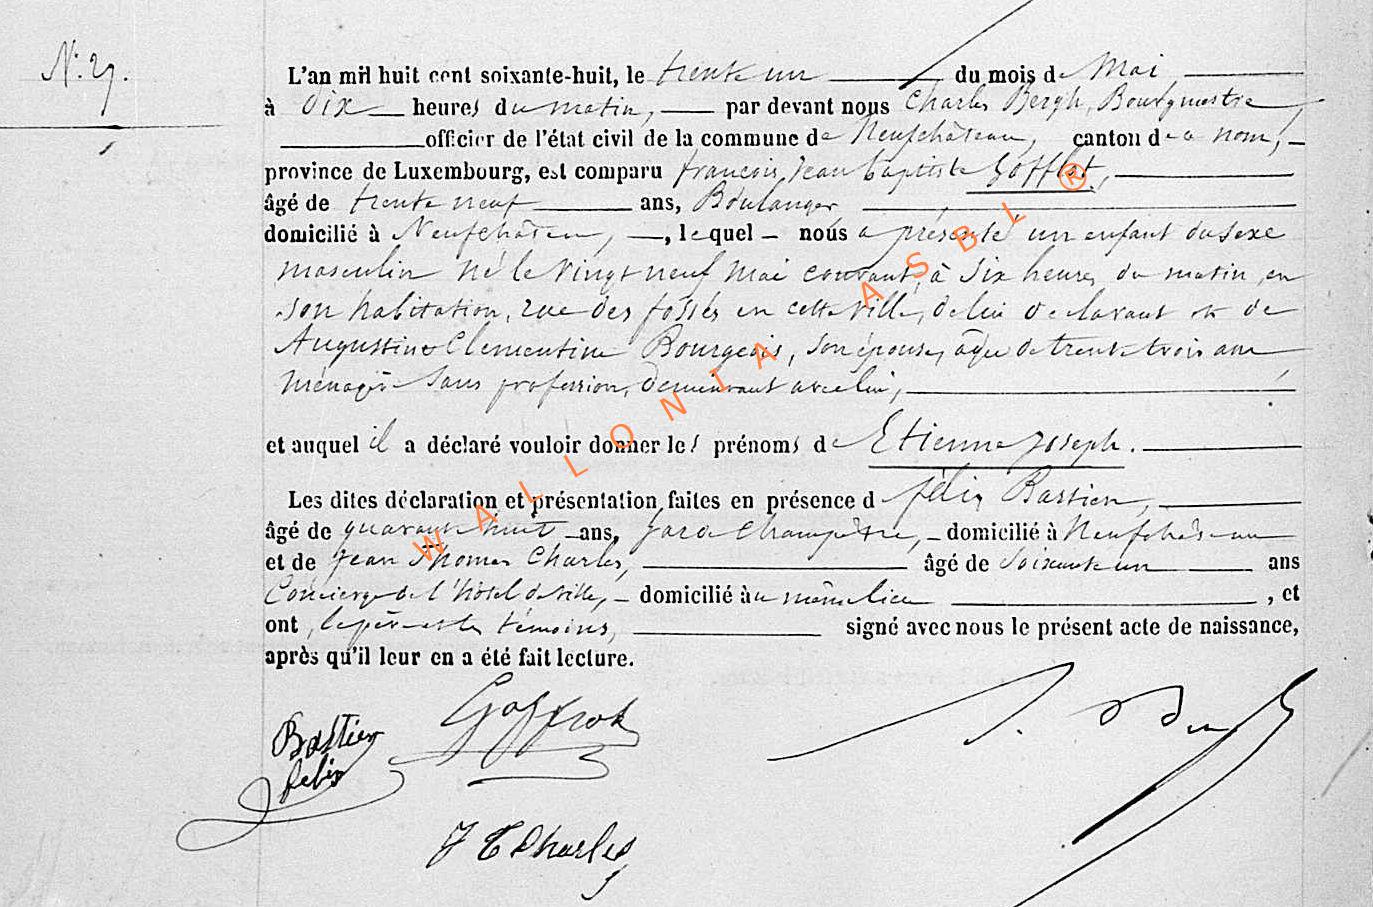 N.° 29.
L'an mil huit cent soixante-huit, le trente un du mois de Mai
à dix heures du matin, par devant nous Charles Bergh, Bourgmestre
officier de l'état civil de la commune de Neufchâteau, canton de ce nom,
province de Luxembourg, est comparu françois, Jean baptiste Gofflot,
âgé de trente neuf ans, Boulanger
domicilié à Neufchâteau, , lequel nous a présenté un enfant du sexe
masculin né le vingt neuf mai courant, à six heures du matin, en
son habitation, rue des fossés en cette ville, de lui déclarant et de
Augustine Clementine Bourgeois, son épouse, âgée de trente trois ans
ménagère sans profession, demeurant avec lui,
et auquel il a déclaré vouloir donner les prénoms de Etienne Joseph.
Les dites déclaration et présentation faites en présence d félix Bastien,
âgé de quarante huit ans, garde Champêtre, domicilié à Neufchâteau
et de Jean Thomas Charles, âgé de soixante un ans
Concierge de l'hôtel de ville, domicilié au même lieu , et
ont , le père et les témoins, signé avec nous le présent acte de naissance,
après qu'il leur en a été fait lecture.
Bastien
felix
J T Charles
WALLONIA ASBL ®